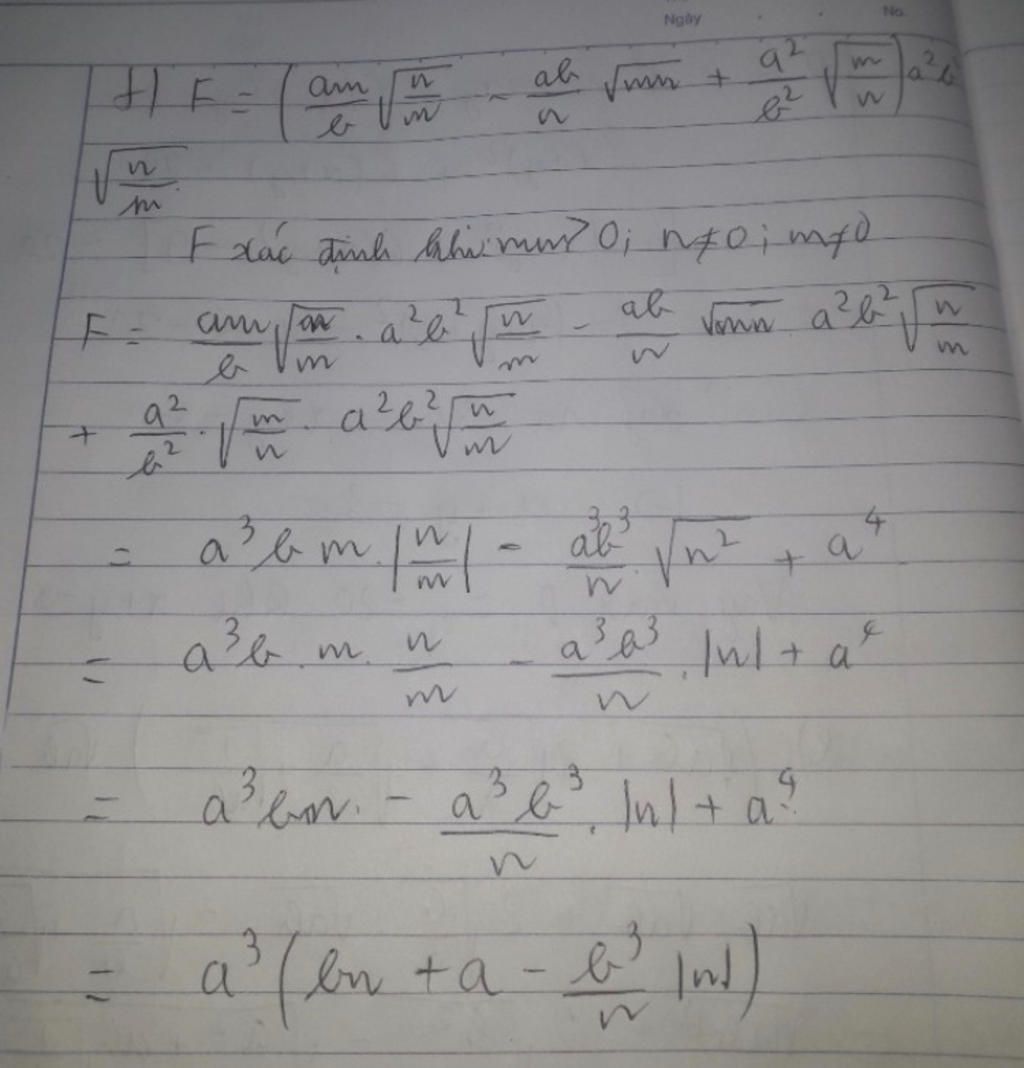 Ngày No.
f) F = (am/b √(n/m) - ab/n √mn + a²/b² √(m/n)) a²b
√(n/m)
F xác định khi: mn > 0; n ≠ 0; m ≠ 0
F = am/b √(n/m) . a²b² √(n/m) - ab/n √mn a²b² √(n/m)
+ a²/b² . √(m/n) . a²b² √(n/m)
= a³ b m . |n/m| - a³b³/n . √n² + a⁴
= a³b . m . n/m - a³b³/n . |n| + a⁴
= a³bn . - a³b³/n . |n| + a⁴
= a³ (bn + a - b³/n |n|)